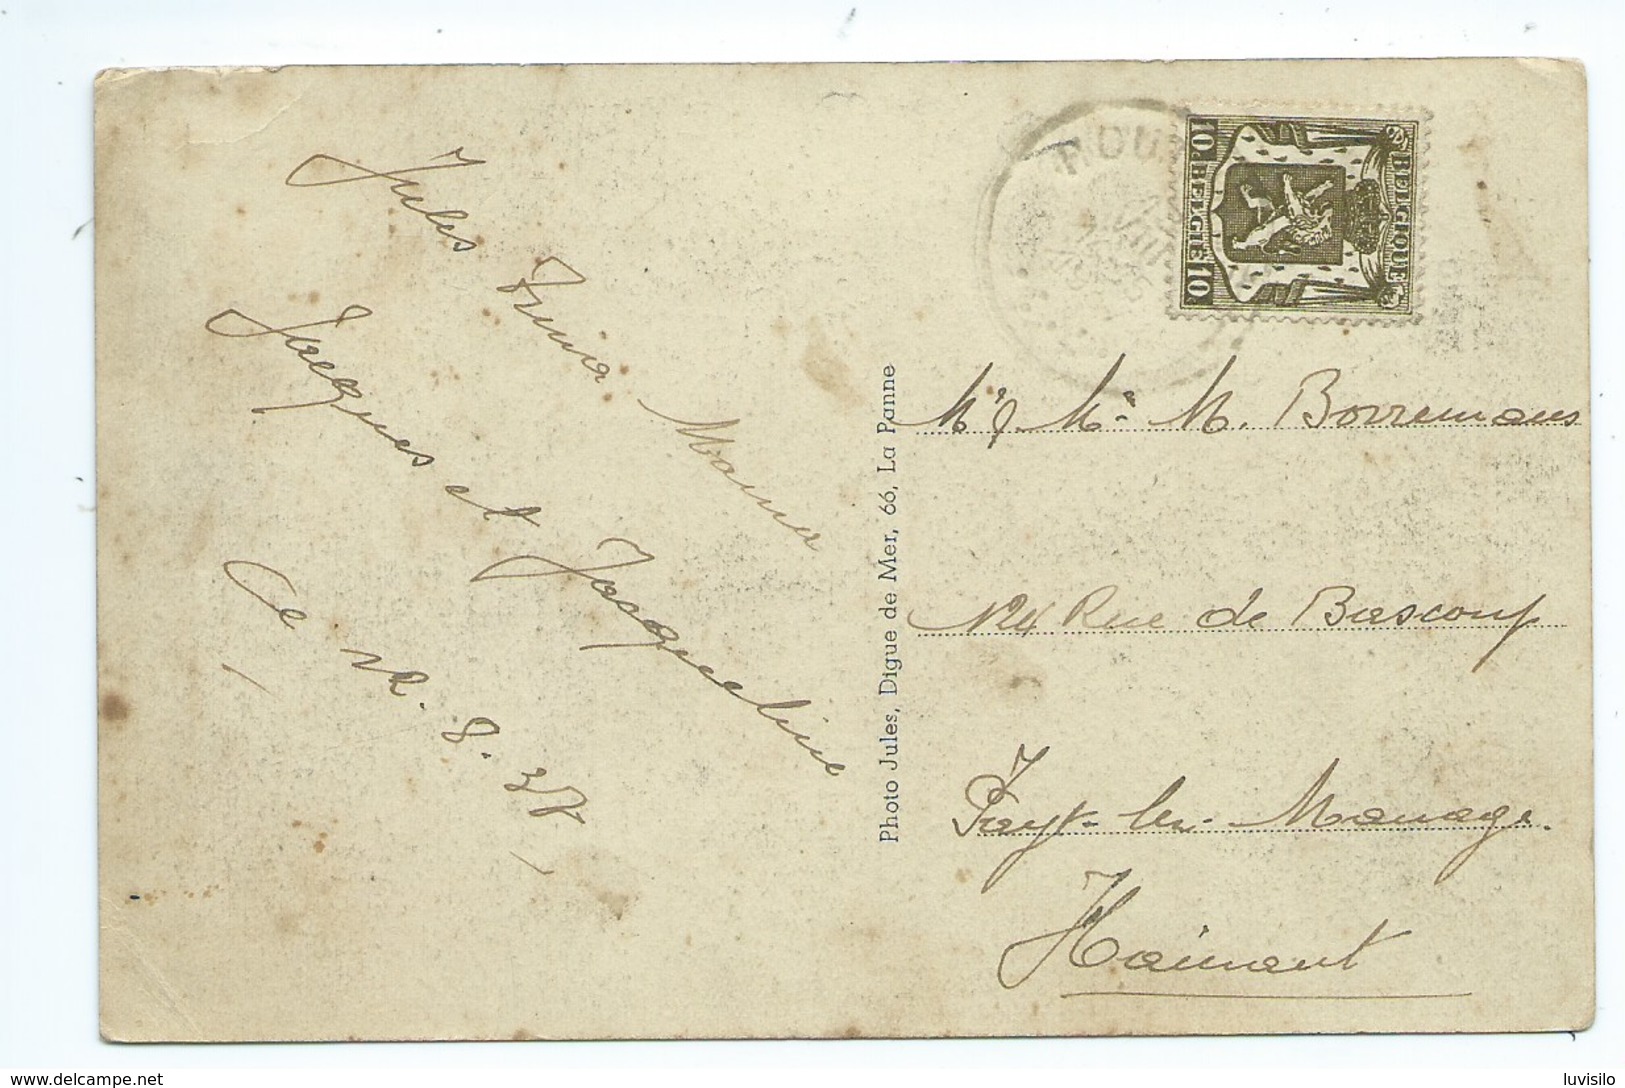 Jules Irma Mama
Jacques et Jacqueline
Ce 12. 8. 38
Photo Jules, Digue de Mer, 66, La Panne
HOU
BELGIQUE
10. BELGIË 10.
Mr & Me M. Borremans
124 Rue de Bascoup
Fayt-lez-Manage.
Hainaut
www.delcampe.net
luvisilo